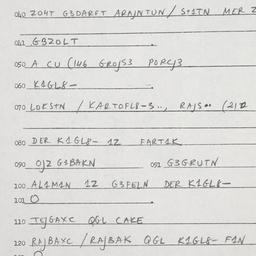 040 ZO4T G3DARFT ARAJNTUN / S+1TN MER Z
041 G3ZOLT
050 A CU (1U6 GROJS3 PORCJ3
060 K1GL8-
070 LOKSTN / KARTOFL8-S.., RAJS.. (21
080 DER K1GL8- 1Z FART1K
090 OJZ G3BAKN 091 G3GRUTN
100 AL1M1N 1Z G3FELN DER K1GL8-
101 O
110 TCJGAXC QGL CAKE
120 RAJBAXC / RAJBAK QGL K1GL8- F1N